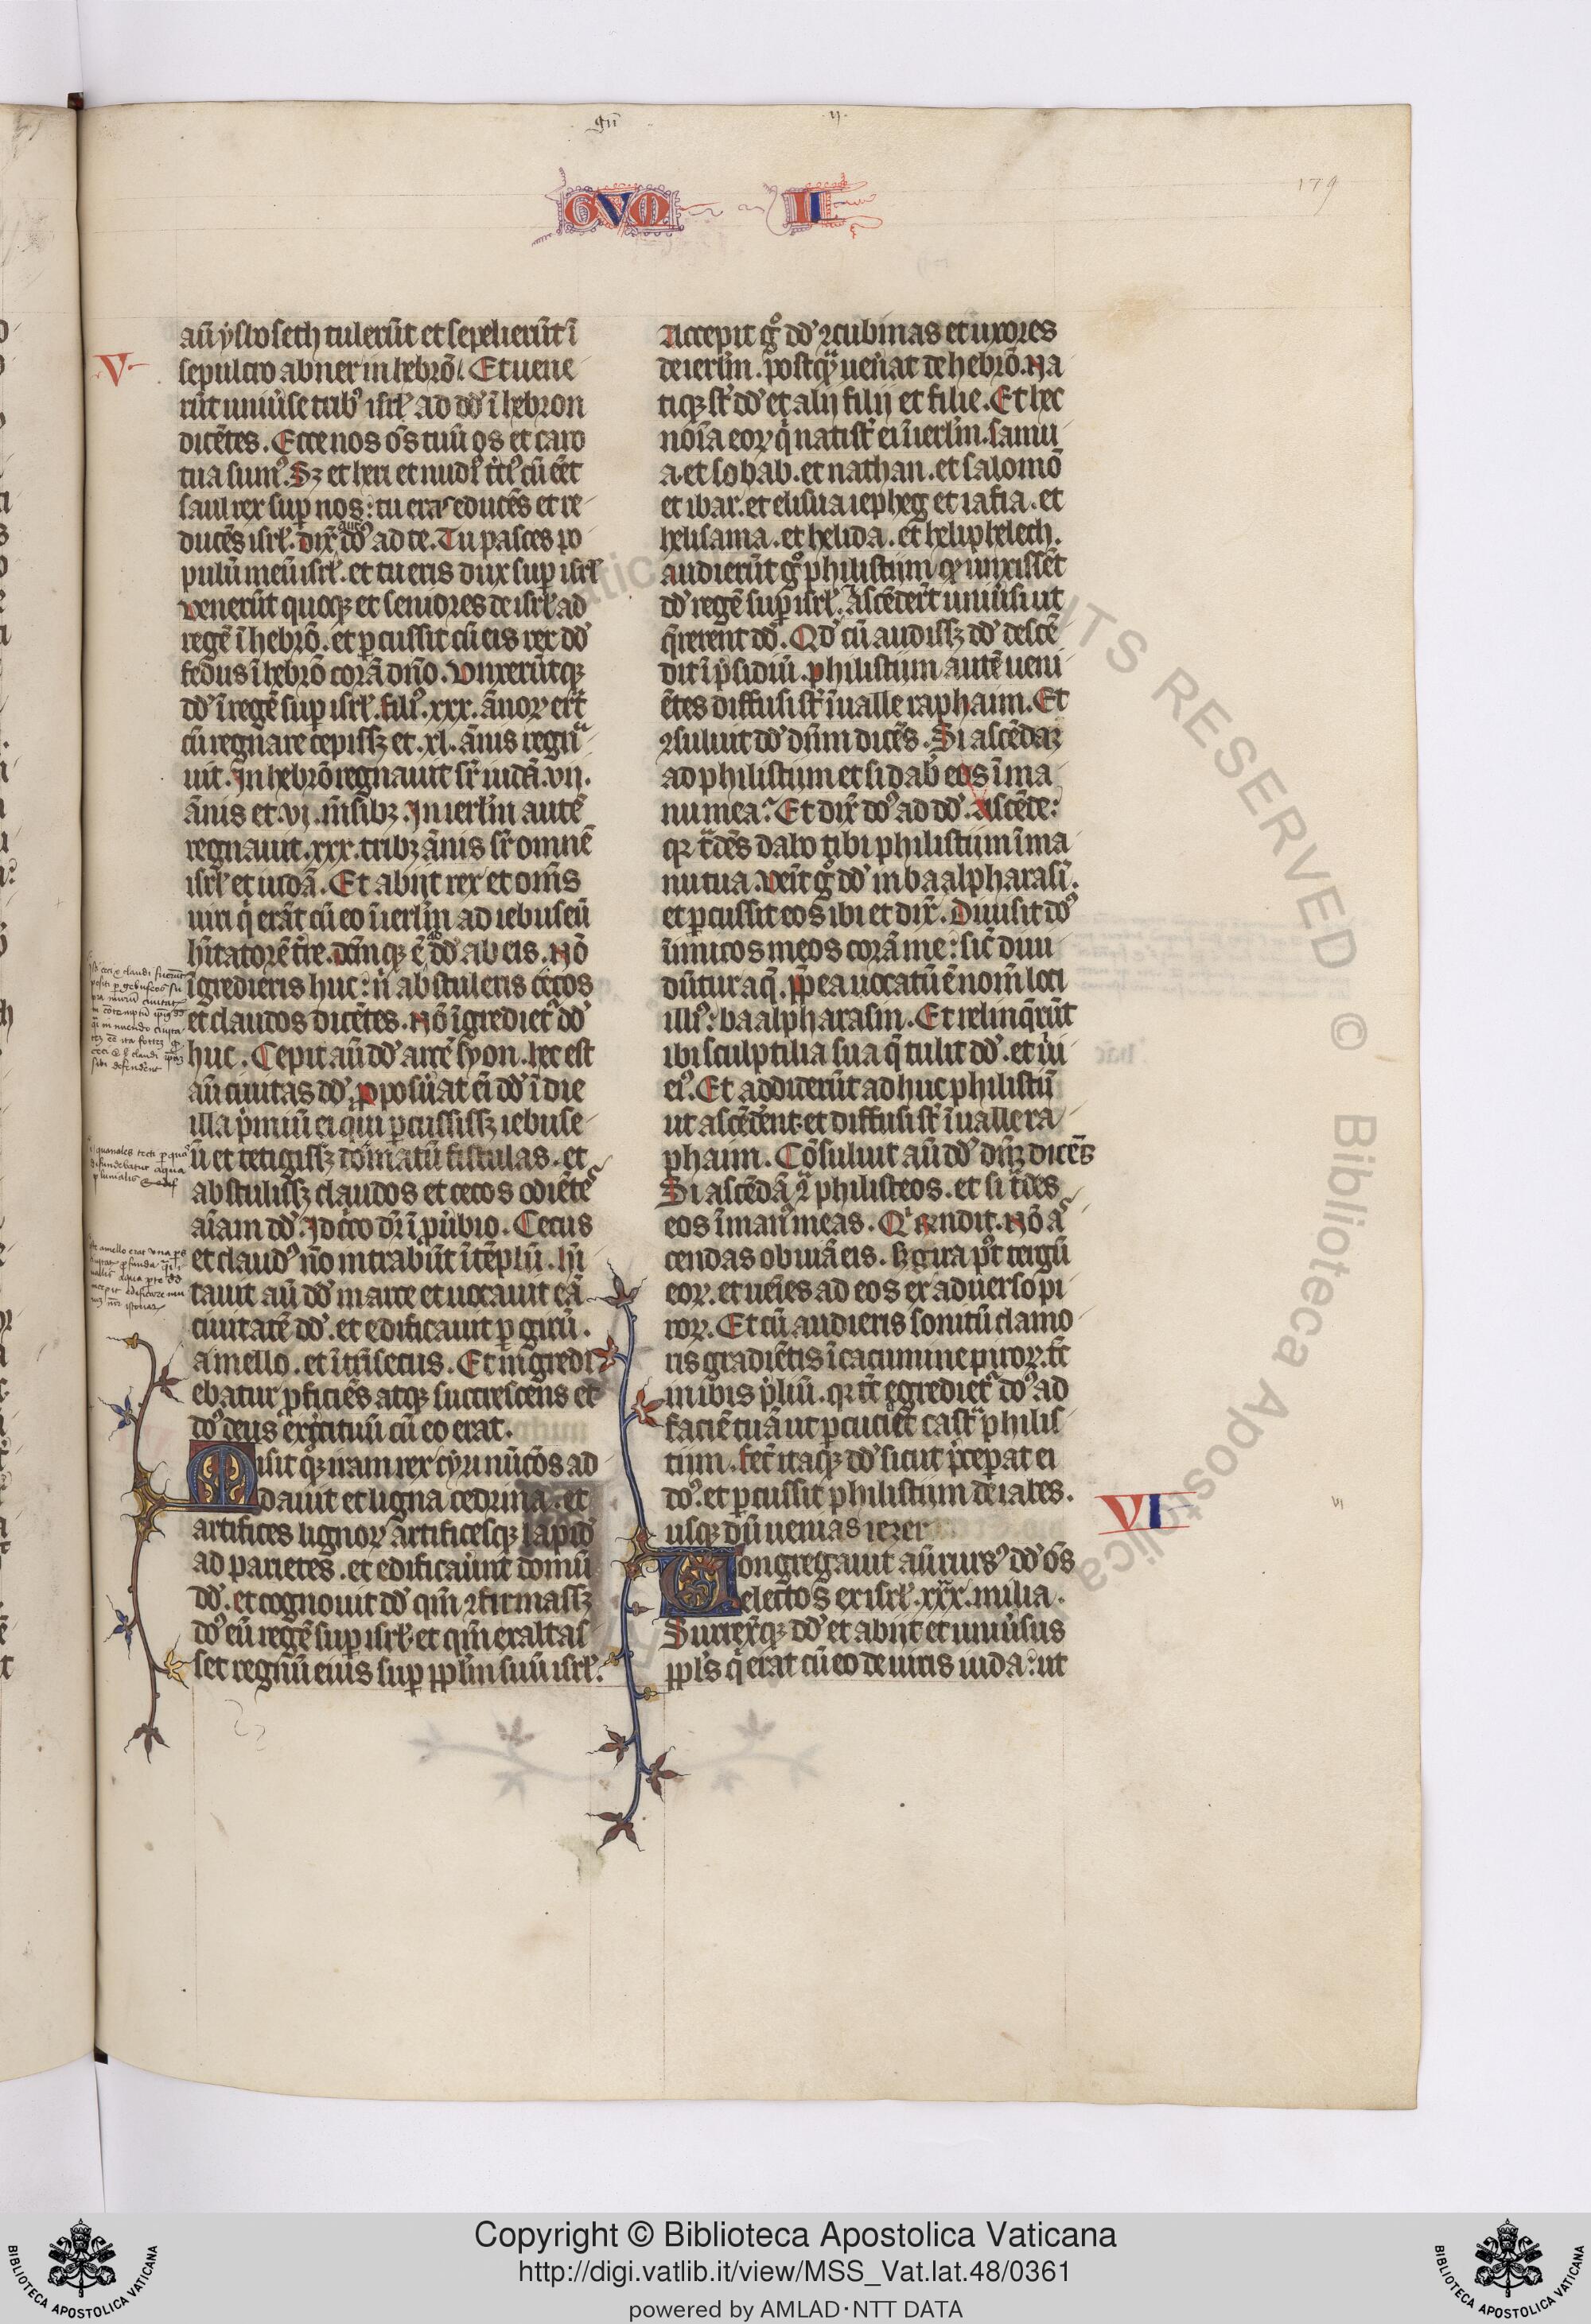 gū ij.
GVM II
179
aū ysboseth tulerūt et sepelierūt ī
V
sepulcro abner in hebrō. Et uene
rūt uniůse tribꝰ isrl̄ ad dd̄ ī hebron
dicētes. Ecce nos os̄ tuū os et caro
tua sumꝰ. Sꝫ et heri et nudiꝰ t̄cꝰ cū eēt
saul rex suꝑ nos: tu eras educēs et re
ducēs isrl̄. dix̄ aut̄ do꜀ꝰ ad te. Tu pasces po
pulū meū isrl̄. et tu eris dux suꝑ isrl̄
venerūt quoqꝫ et seniores de isrl̄ ad
regē ī hebrō. et ꝑcussit cū eis rex dd̄
fedus ī hebrō corā dn̄o. Unxerūtqꝫ
dd̄ ī regē suꝑ isrl̄. filiꝰ .xxx. ānoꝝ erāt
cū regnare cepissꝫ et .xl. ānis regna
uit. In hebrō regnauit sr̄ iudā .vii.
ānis et .vi. mēsibꝫ. In ierl̄m autē
regnauit .xxx. tribꝫ ānis sr̄ omnē
isrl̄ et iudā. Et abijt rex et om̄s
uiri q̄ erāt cū eo ī ierl̄m ad iebuseū
hītatorē tr̄re. dcm̄qꝫ ē dd̄ ab eis. Nō
īgredieris huc: nˢ abstuleris cecos
et claudos dicētes. Nō īgrediet̄ dd̄
huc. Cepit aū dd̄ arcē syon. hec est
aū ciuitas dd̄. ꝓposuāt eī dd̄ ī die
illa pˢmiū ei qui ꝑcussissꝫ iebuse
ū et tetigissꝫ domatū fistulas. et
abstulissꝫ claudos et cecos odiētes
aīam dd̄. Idcirco dr̄ ī ꝓuˢbio. Cecus
et claudꝰ nō intrabūt ī tēplū. hī
tauit aū dd̄ in arce et uocauit eā
ciuitatē dd̄. et edificauit ꝑ girū.
a mello. et ītrīsecus. Et ingredi
ebatur ꝓficiēs atqꝫ succrescens et
do꜀ꝰ deus exˢcituū cū eo erat.
Misit qꝫ iram rex tyri nūcios ad
dauit et ligna cedrina. et
artifices lignoꝝ artificesqꝫ lapid̄
ad parietes. et edificauˢunt domū
dd̄. et cognouit dd̄ qm̄ ꝯfirmassꝫ
do꜀ꝰ eū regē suꝑ isrl̄. et qm̄ exaltas
set regnū eius suꝑ ppl̄m suū isrl̄.
Accepit gͦ dd̄ ꝯcubinas et uxores
de ierl̄m. postqͣꝫ ueˢnat de hebrō. Na
tiqꝫ st̄ dd̄ et alij filij et filie. Et hec
noīa eoꝝ q̄ nati st̄ ei ī ierl̄m. samu
a. et sobab. et nathan. et salomō
et ibar. et elisua iepheg et iafia. et
helisama. et helida. et heliphelech.
audierūt gͦ philistiim qꝫ unxissēt
dd̄ regē suꝑ isrl̄. Ascēderˢt uniůsi ut
q̄rerent dd̄. Qd̄ cū audissꝫ dd̄ descē
dit ī pˢsidiū. philistiim autē ueni
ētes diffusi st̄ ī ualle raphaim. Et
ꝯsuluit dd̄ dn̄m dicēs. Si ascēdaꝫ
ad philistiim et si dabˢ eos ī ma
nu mea: Et dix̄ do꜀ꝰ ad dd̄. Ascēde:
qꝛ tˢdēs dabo tibi philistiim ī ma
nu tua. venit gͦ dd̄ in baalpharasī.
et ꝑcussit eos ibi et dix̄. Diuisit do꜀ꝰ
īimicos meos corā me: sic̄ diui
dūtur aq̄. ꝓp̄ea uocatū ē nom̄ loci
illiꝰ: baalpharasin. Et relinq̄rūt
ibi sculptilia sua q̄ tulit dd̄. et uˢi
eiꝰ. Et addiderūt adhuc philistiī
ut ascēdˢent. et diffusi st̄ ī ualle ra
phaim. Cōsuluit aū dd̄ dn̄ꝫ dicēs
Si ascēdā ꝯͣ philisteos. et si tˢdes
eos ī manꝰ meas. Qˢ Rn̄dit. Nō a
cendas obuiā eis. sꝫ gira pꝰt tergū
eoꝝ. et ueˢies ad eos ex aduerso pi
roꝝ. Et cū audieris sonitū clamo
ris gradiētis ī cacumine piroꝝ. tc̄
inibis pˢliū. qꝛ tc̄ egrediet̄ do꜀ꝰ ad
faciē tuā ut ꝑcuciet castˢ philis
tiim. fecit itaqꝫ dd̄ sicut pˢceꝑat ei
do꜀ꝰ. et ꝑcussit philistiim de iabes.
VI
vi
usqꝫ dū uenias iezer
Congregauit aū rursꝰ dd̄ os̄
electos ex isrl̄ .xxx. milia.
Surrex̄qꝫ dd̄ et abijt et uniůsus
ppl̄s q̄ erat cū eo de uiris iuda: ut
Copyright © Biblioteca Apostolica Vaticana
http://digi.vatlib.it/view/MSS_Vat.lat.48/0361
powered by AMLAD·NTT DATA
BIBLIOTECA APOSTOLICA VATICANA
BIBLIOTECA APOSTOLICA VATICANA